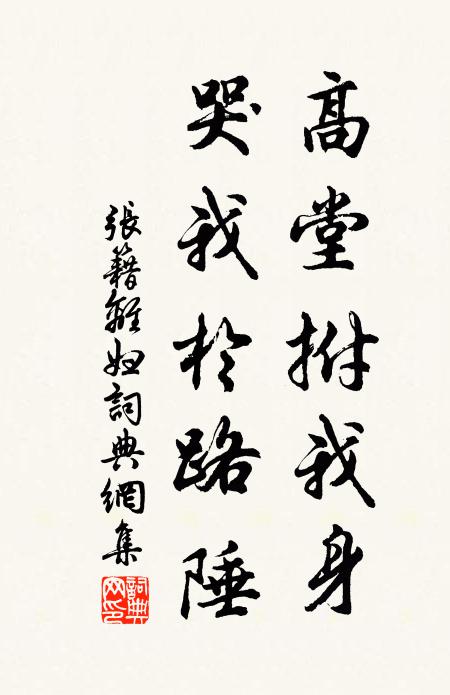 高堂拊我身
哭我於路陲
張籍離婦詞典網集
詞典网印